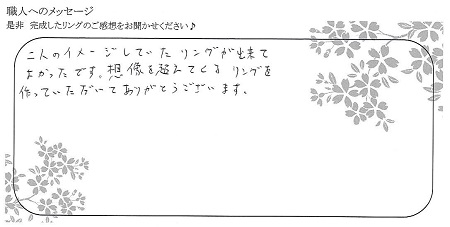 職人へのメッセージ
是非 完成したリングのご感想をお聞かせください♪
二人のイメージしていたリングが出来て
よかったです。想像を超えてくるリングを
作っていただいてありがとうございます。